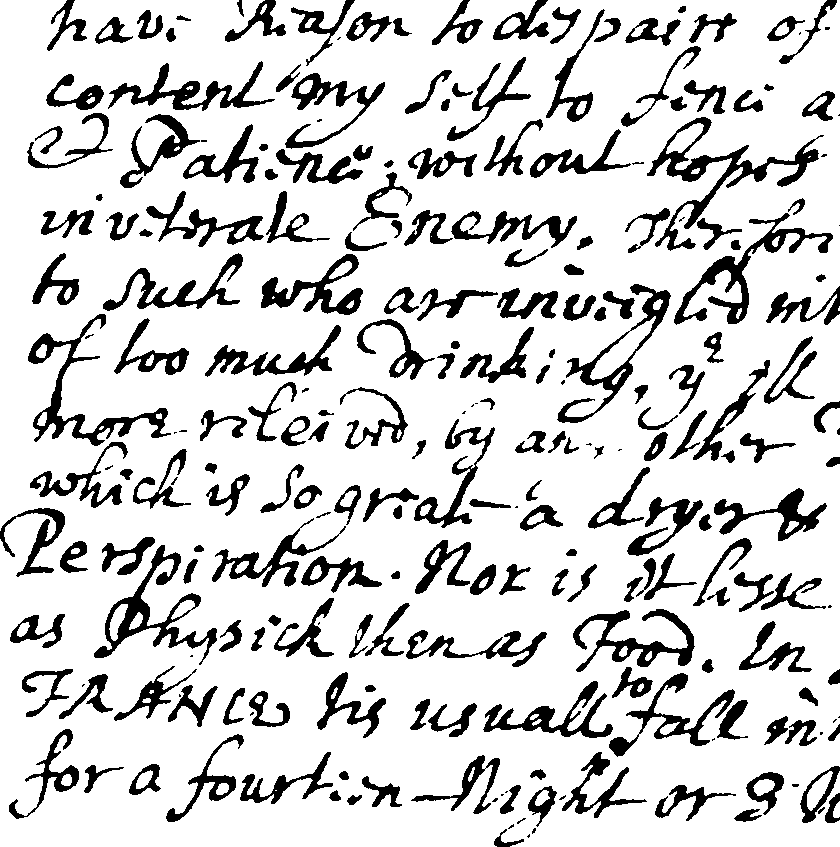 have Reason to dispaire of
content my self to fence a
& Patience; without hopes
inveterate Enemy. Therefore
to such who are inveigled
of too much Drinking, ye ill
more releived, by an other
which is so greate a dryer &
Perspiration. Nor is it lesse
as Physick then as Food. In
FRANCE tis usuall to fall in
for a fourteen-Night or 3